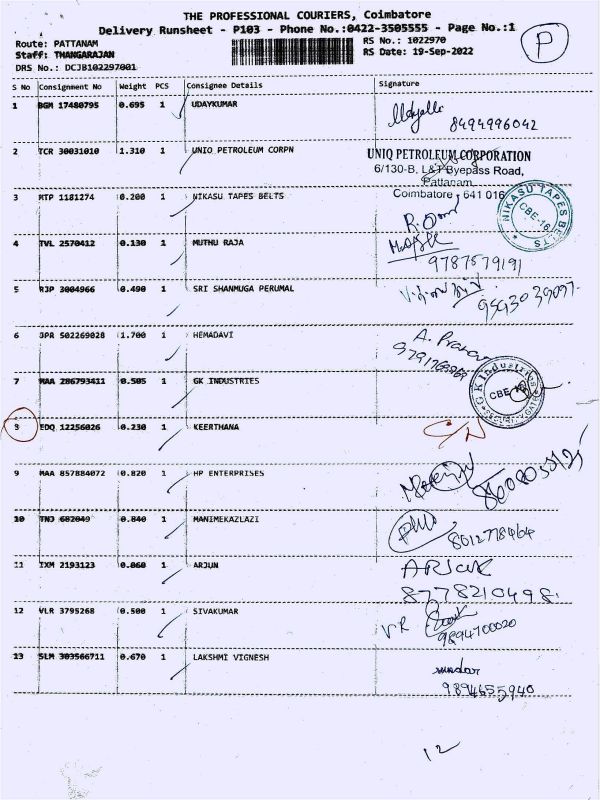 THE PROFESSIONAL COURIERS, Coimbatore
Delivery Runsheet - P103 - Phone No.:0422-3505555 - Page No.:1
P
Route: PATTANAM RS No.: 1022970
Staff: THANGARAJAN RS Date: 19-Sep-2022
DRS No.: DCJB102297001
S No Consignment No Weight PCS Consignee Details Signature
1 BGM 17480795 0.695 1 UDAYKUMAR
8494996042
2 TCR 30031010 1.310 1 UNIQ PETROLEUM CORPN UNIQ PETROLEUM CORPORATION
6/130-B, L&T Byepass Road,
Pattanam,
Coimbatore - 641 016
3 MTP 1181274 0.200 1 NIKASU TAPES BELTS
NIKASU TAPES BELTS
CBE-16
4 TVL 2570412 0.130 1 MUTHU RAJA
9787579191
5 RJP 3004966 0.490 1 SRI SHANMUGA PERUMAL
6 JPR 502269028 1.700 1 HEMADAVI
7 MAA 286793411 0.505 1 GK INDUSTRIES
G K Industries
CBE
EDQ 12256026 0.230 1 KEERTHANA
9 MAA 857884072 0.820 1 HP ENTERPRISES
10 TNJ 682049 0.840 1 MANIMEKAZLAZI
11 IXM 2193123 0.060 1 ARJUN
ARJUN
8778210498
12 VLR 3795268 0.500 1 SIVAKUMAR
VR
9894700020
13 SLM 303566711 0.670 1 LAKSHMI VIGNESH
sundar
9894655940
12